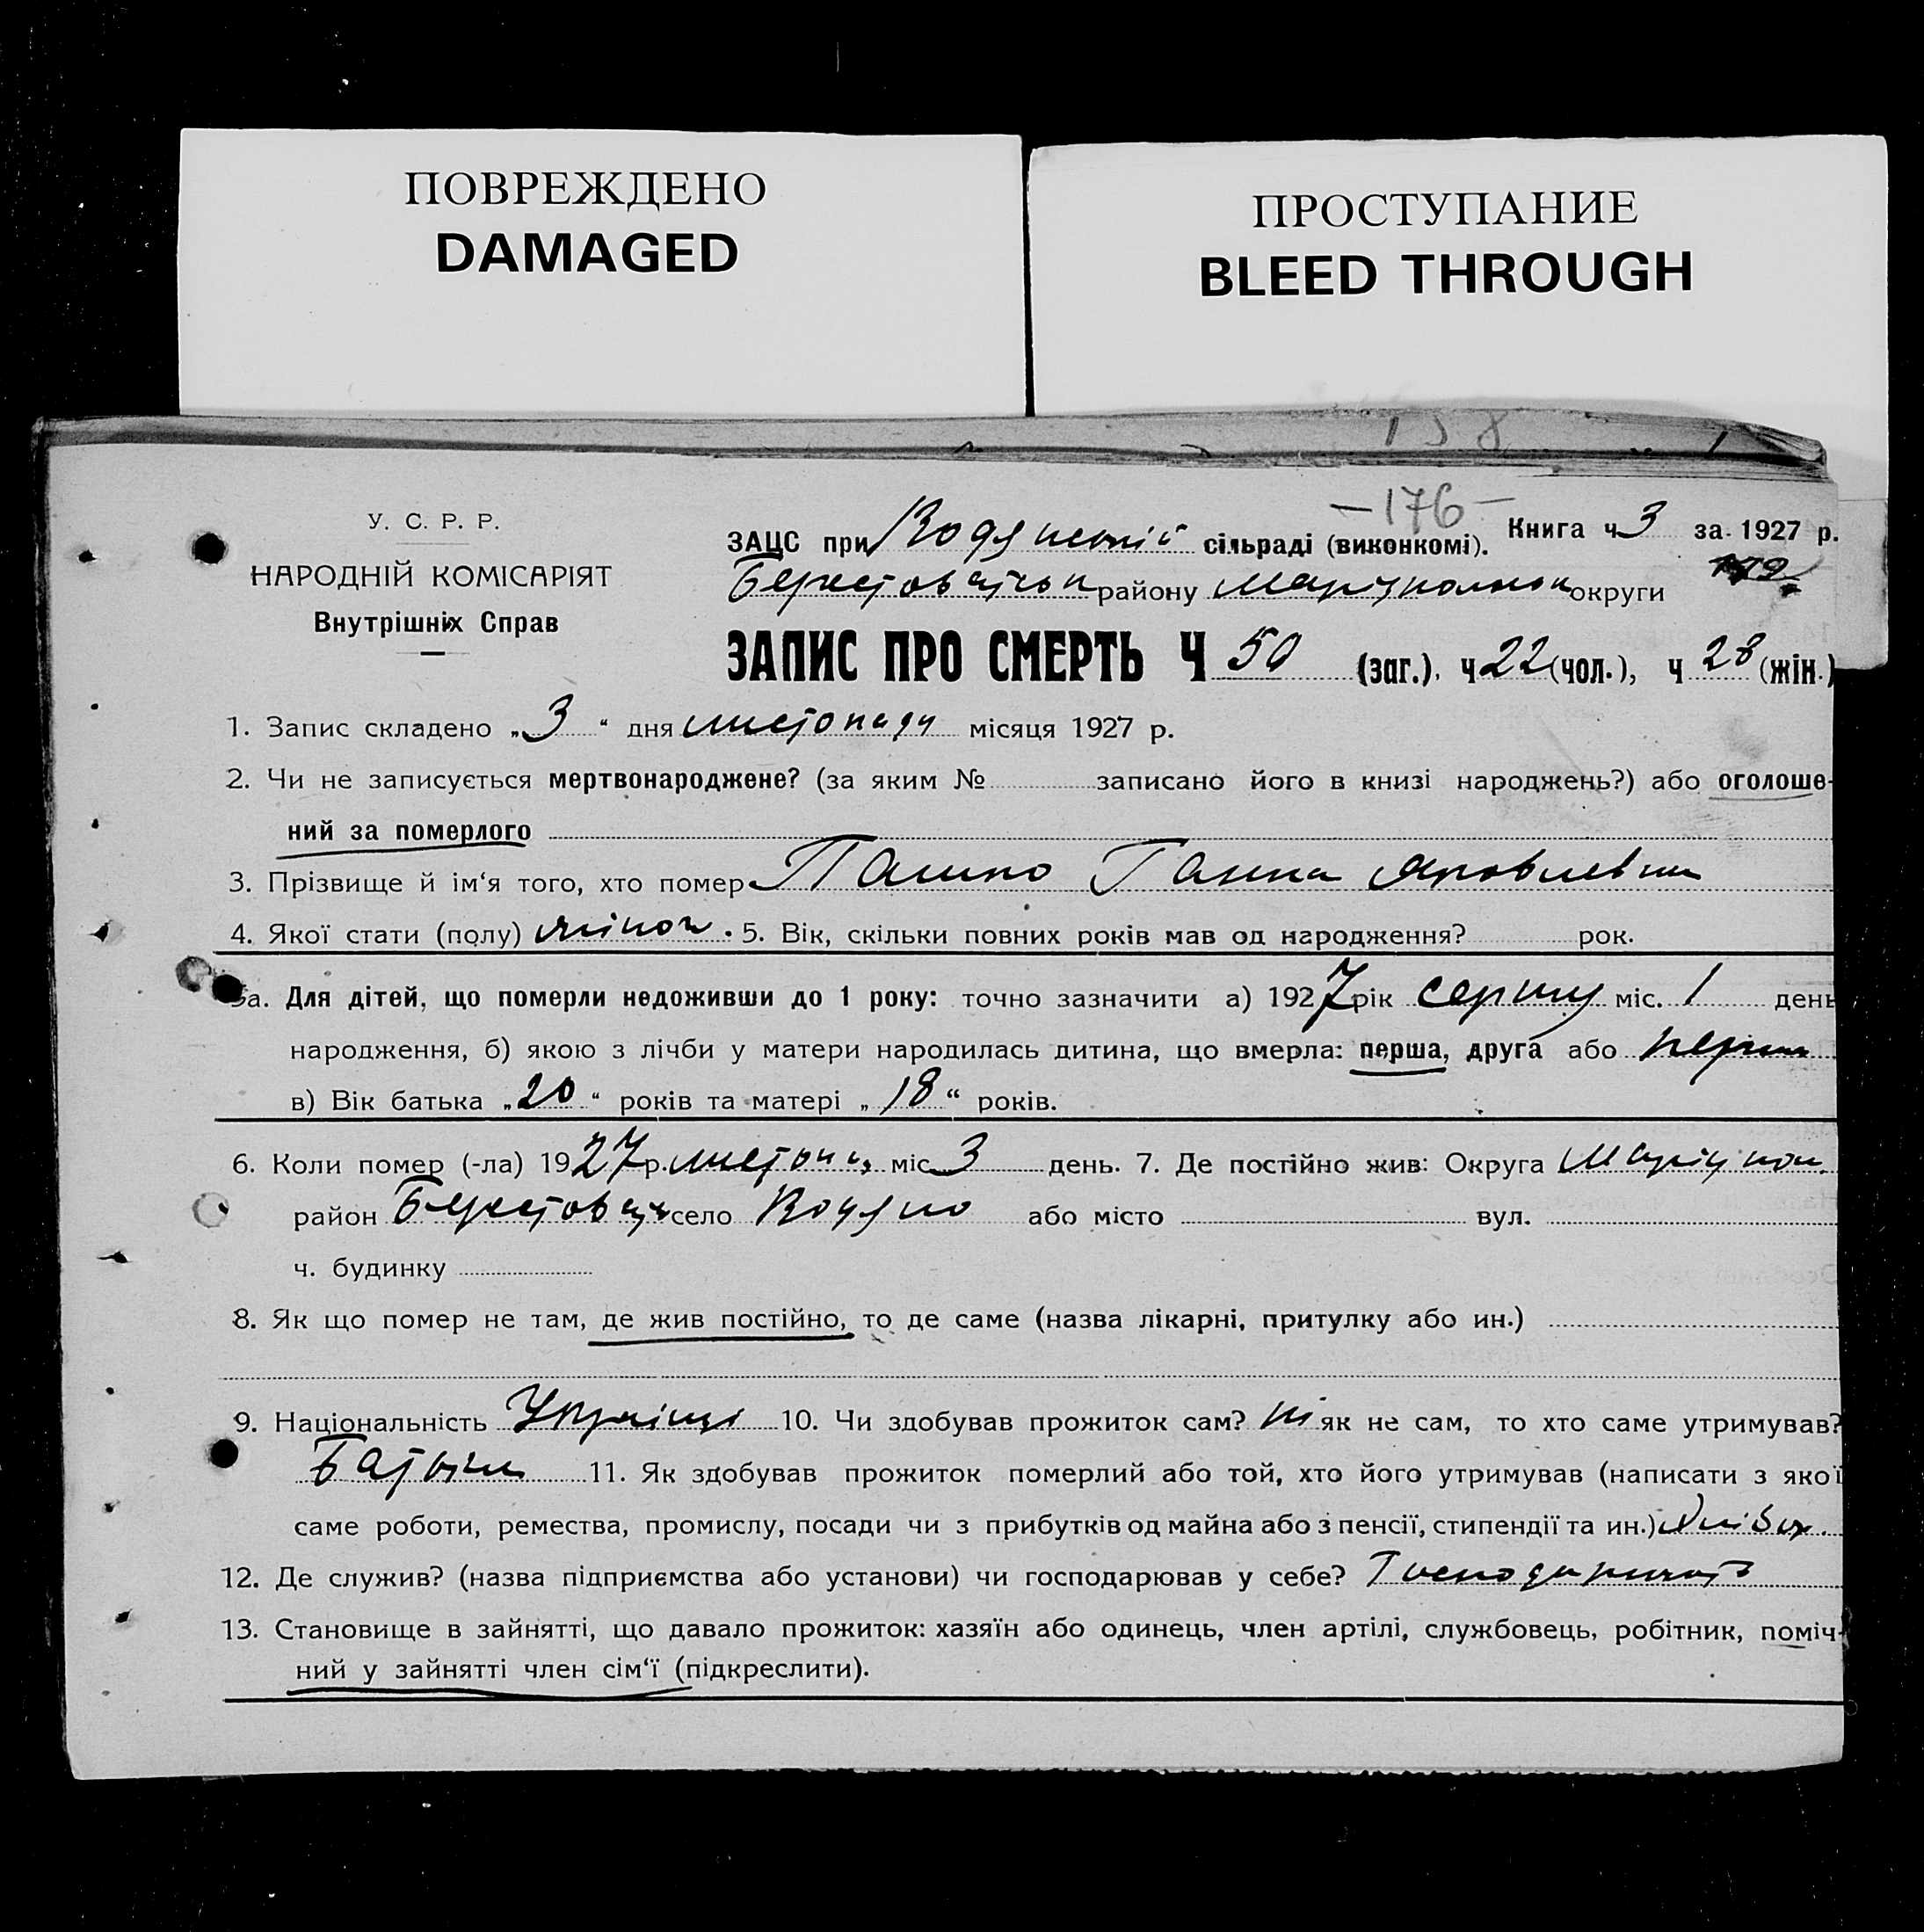 ПОВРЕЖДЕНО
DAMAGED
ПРОСТУПАНИЕ
BLEED THROUGH
158
—176—
У. С. Р. Р.
НАРОДНІЙ КОМІСАРІЯТ
Внутрішніх Справ
ЗАЦС при Водяненській сільраді (виконкомі). Книга ч 3 за 1927 р.
Берестоватськ району Маріупольськ округи
ЗАПИС ПРО СМЕРТЬ Ч 50 (заг.), ч 22 (чол.), ч 28 (жін.)
1. Запис складено „3“ дня листопаду місяця 1927 р.
2. Чи не записується мертвонароджене? (за яким № записано його в книзі народжень?) або оголоше-
ний за померлого
3. Прізвище й ім‘я того, хто помер Ганна Яковлевна
4. Якої стати (полу) жіноч. 5. Вік, скільки повних років мав од народження? рок.
5а. Для дітей, що померли недоживши до 1 року: точно зазначити а) 1927 рік серпня міс. 1 день
народження, б) якою з лічби у матери народилась дитина, що вмерла: перша, друга або перша
в) Вік батька „20“ років та матері „18“ років.
6. Коли помер (-ла) 1927 р. листопад міс 3 день. 7. Де постійно жив: Округа Маріупол.
район Берестовацьк село Водяно або місто вул.
ч. будинку
8. Як що помер не там, де жив постійно, то де саме (назва лікарні, притулку або ин.)
9. Національність Українці 10. Чи здобував прожиток сам? Ні як не сам, то хто саме утримував?
Батьки 11. Як здобував прожиток померлий або той, хто його утримував (написати з якої
саме роботи, ремества, промислу, посади чи з прибутків од майна або з пенсії, стипендії та ин.) Хлібор.
12. Де служив? (назва підприємства або установи) чи господарював у себе?
13. Становище в зайнятті, що давало прожиток: хазяїн або одинець, член артілі, службовець, робітник, поміч-
ний у зайнятті член сім‘ї (підкреслити).